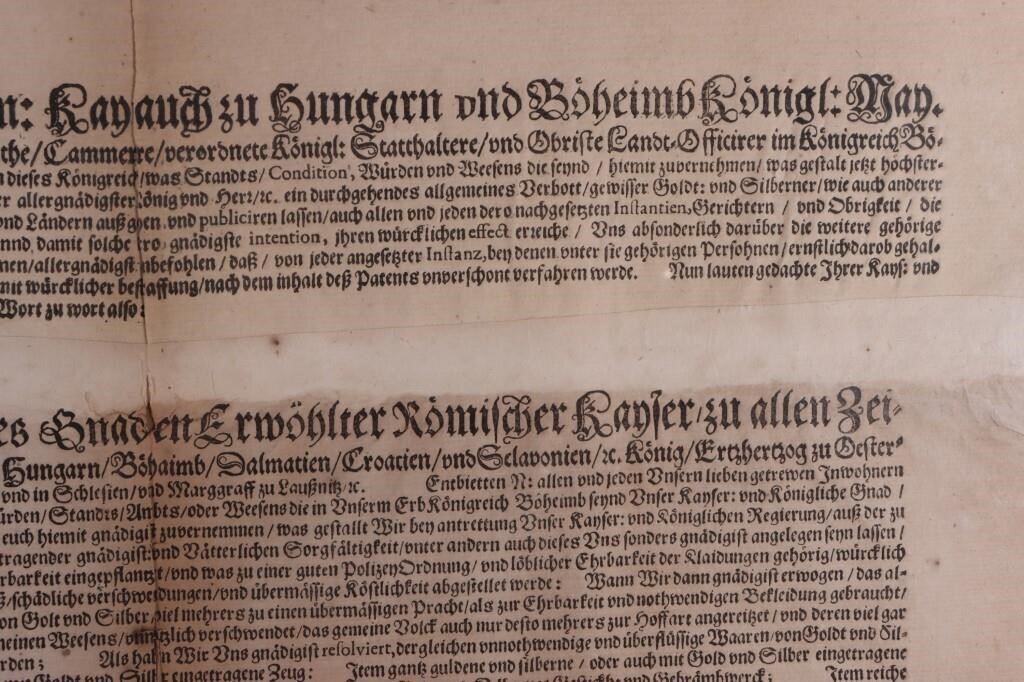 n: Kay auch zu Hungarn vnd Böheimb Königl: May.
the/Cammerre/verordnete Königl: Statthaltere/vnd Obriste Landt-Officirer im Königreich Bö-
n dieses Königreich/was Standts/Condition, Würden vnd Weesens die seynd / hiemit zuvernehmen/was gestalt jetzt höchster-
r allergnädigster König vnd Herz/ꝛc. ein durchgehendes allgemeines Verbott/gewisser Goldt: vnd Silberner/wie auch anderer
vnd Ländern außg en vnd publiciren lassen/auch allen vnd jeden dero nachgesetzten Instantien,Gerichtern / vnd Obrigkeit / die
nnd damit solche ro gnädigste intention, jhren würcklichen effect erreiche / Vns absonderlich darüber die weitere gehörige
men/allergnädigst nbefohlen / daß / von jeder angesetzter Instanz,bey denen vnter sie gehörigen Persohnen/ernstlich darob gehal-
mit würcklicher be affung/nach dem inhalt deß Patents vnverschont verfahren werde. Nun lauten gedachte Ihrer Kays: vnd
Wort zu wort also:
es Gnaden Erwöhlter Römischer Kayser/zu allen Zei-
Hungarn/Böhaimb/Dalmatien/Croatien/vnd Sclavonien/ꝛc. König/Ertzhertzog zu Oester-
vnd in Schlesien/vnd Marggraff zu Laußnitz/ꝛc. Entbietten N: allen vnd jeden Vnsern lieben getrewen Inwohnern
ürden/Standts/Ambts/oder Weesens die in Vnserm Erb Königreich Böheimb seynd Vnser Kayser: vnd Königliche Gnad /
euch hiemit gnädigist zuvernemmen / was gestallt Wir bey antrettung Vnser Kayser: vnd Königlichen Regierung/auß der zu
tragender gnädigist: vnd Vätterlichen Sorgfältigkeit/vnter andern auch dieses Vns sonders gnädigist angelegen seyn lassen /
rbarkeit eingepflantzt/vnd was zu einer guten Polizey Ordnung/vnd löblicher Ehrbarkeit der Klaidungen gehörig/würcklich
ß/schädliche verschwendungen/vnd übermässige Köstlichkeit abgestellet werde: Wann Wir dann gnädigist erwogen / das al-
on Golt vnd Silber viel mehrers zu einen übermässigen Pracht/als zur Ehrbarkeit vnd nothwendigen Bekleidung gebraucht/
meinen Weesens/vnnützlich verschwendet/das gemeine Volck auch nur desto mehrers zur Hoffart angereitzet / vnd deren viel gar
rden; Als haben Wir Vns gnädigist resolviert,dergleichen vnnothwendige vnd überflüssige Waaren/von Goldt vnd Sil-
mit Goldt vnd Silber eingetragene Zeug: Item gantz guldene vnd silberne / oder auch mit Gold vnd Silber eingetragene
Item reiche